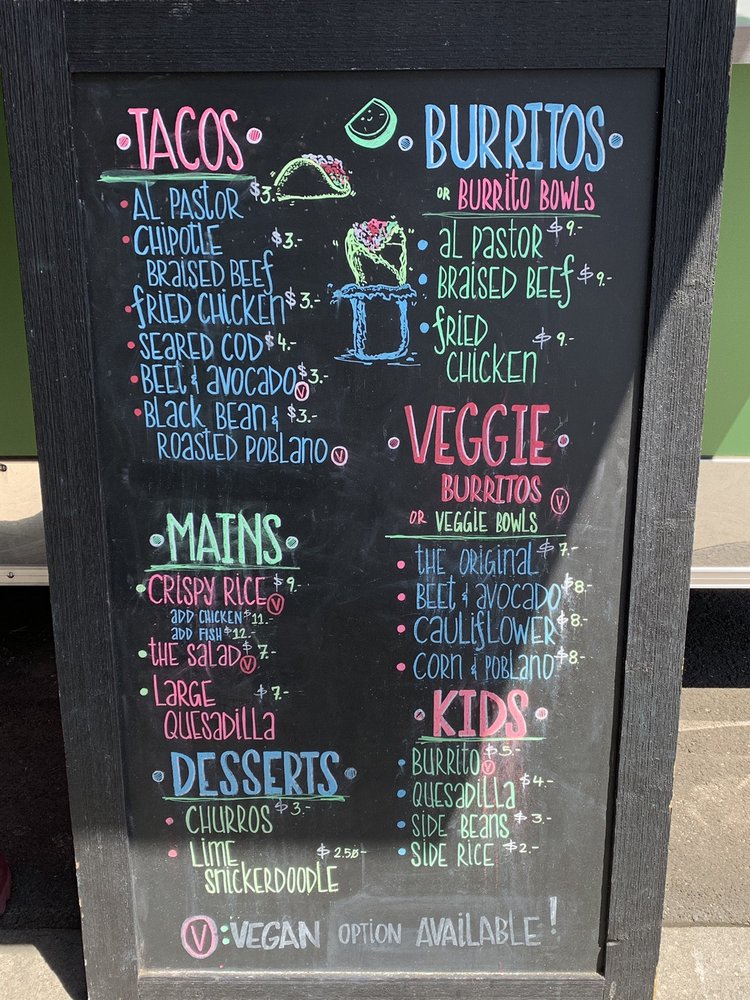 TACOS
AL PASTOR $3.-
CHIPOTLE $3.-
BRAISED BEEF
FRIED CHICKEN $3.-
SEARED COD $4.-
BEET & AVOCADO $3.- V
BLACK BEAN & $3.-
ROASTED POBLANO V
MAINS
CRISPY RICE $9.- V
ADD CHICKEN $11.-
ADD FISH $12.-
THE SALAD $7.- V
LARGE $7.-
QUESADILLA
DESSERTS
CHURROS $3.-
LIME $2.50-
SNICKERDOODLE
BURRITOS
OR BURRITO BOWLS
AL PASTOR $9.-
BRAISED BEEF $9.-
FRIED $9.-
CHICKEN
VEGGIE
BURRITOS V
OR VEGGIE BOWLS
THE ORIGINAL $7.-
BEET & AVOCADO $8.-
CAULIFLOWER $8.-
CORN & POBLANO $8.-
KIDS
BURRITO $5.- V
QUESADILLA $4.-
SIDE BEANS $3.-
SIDE RICE $2.-
V : VEGAN OPTION AVAILABLE!